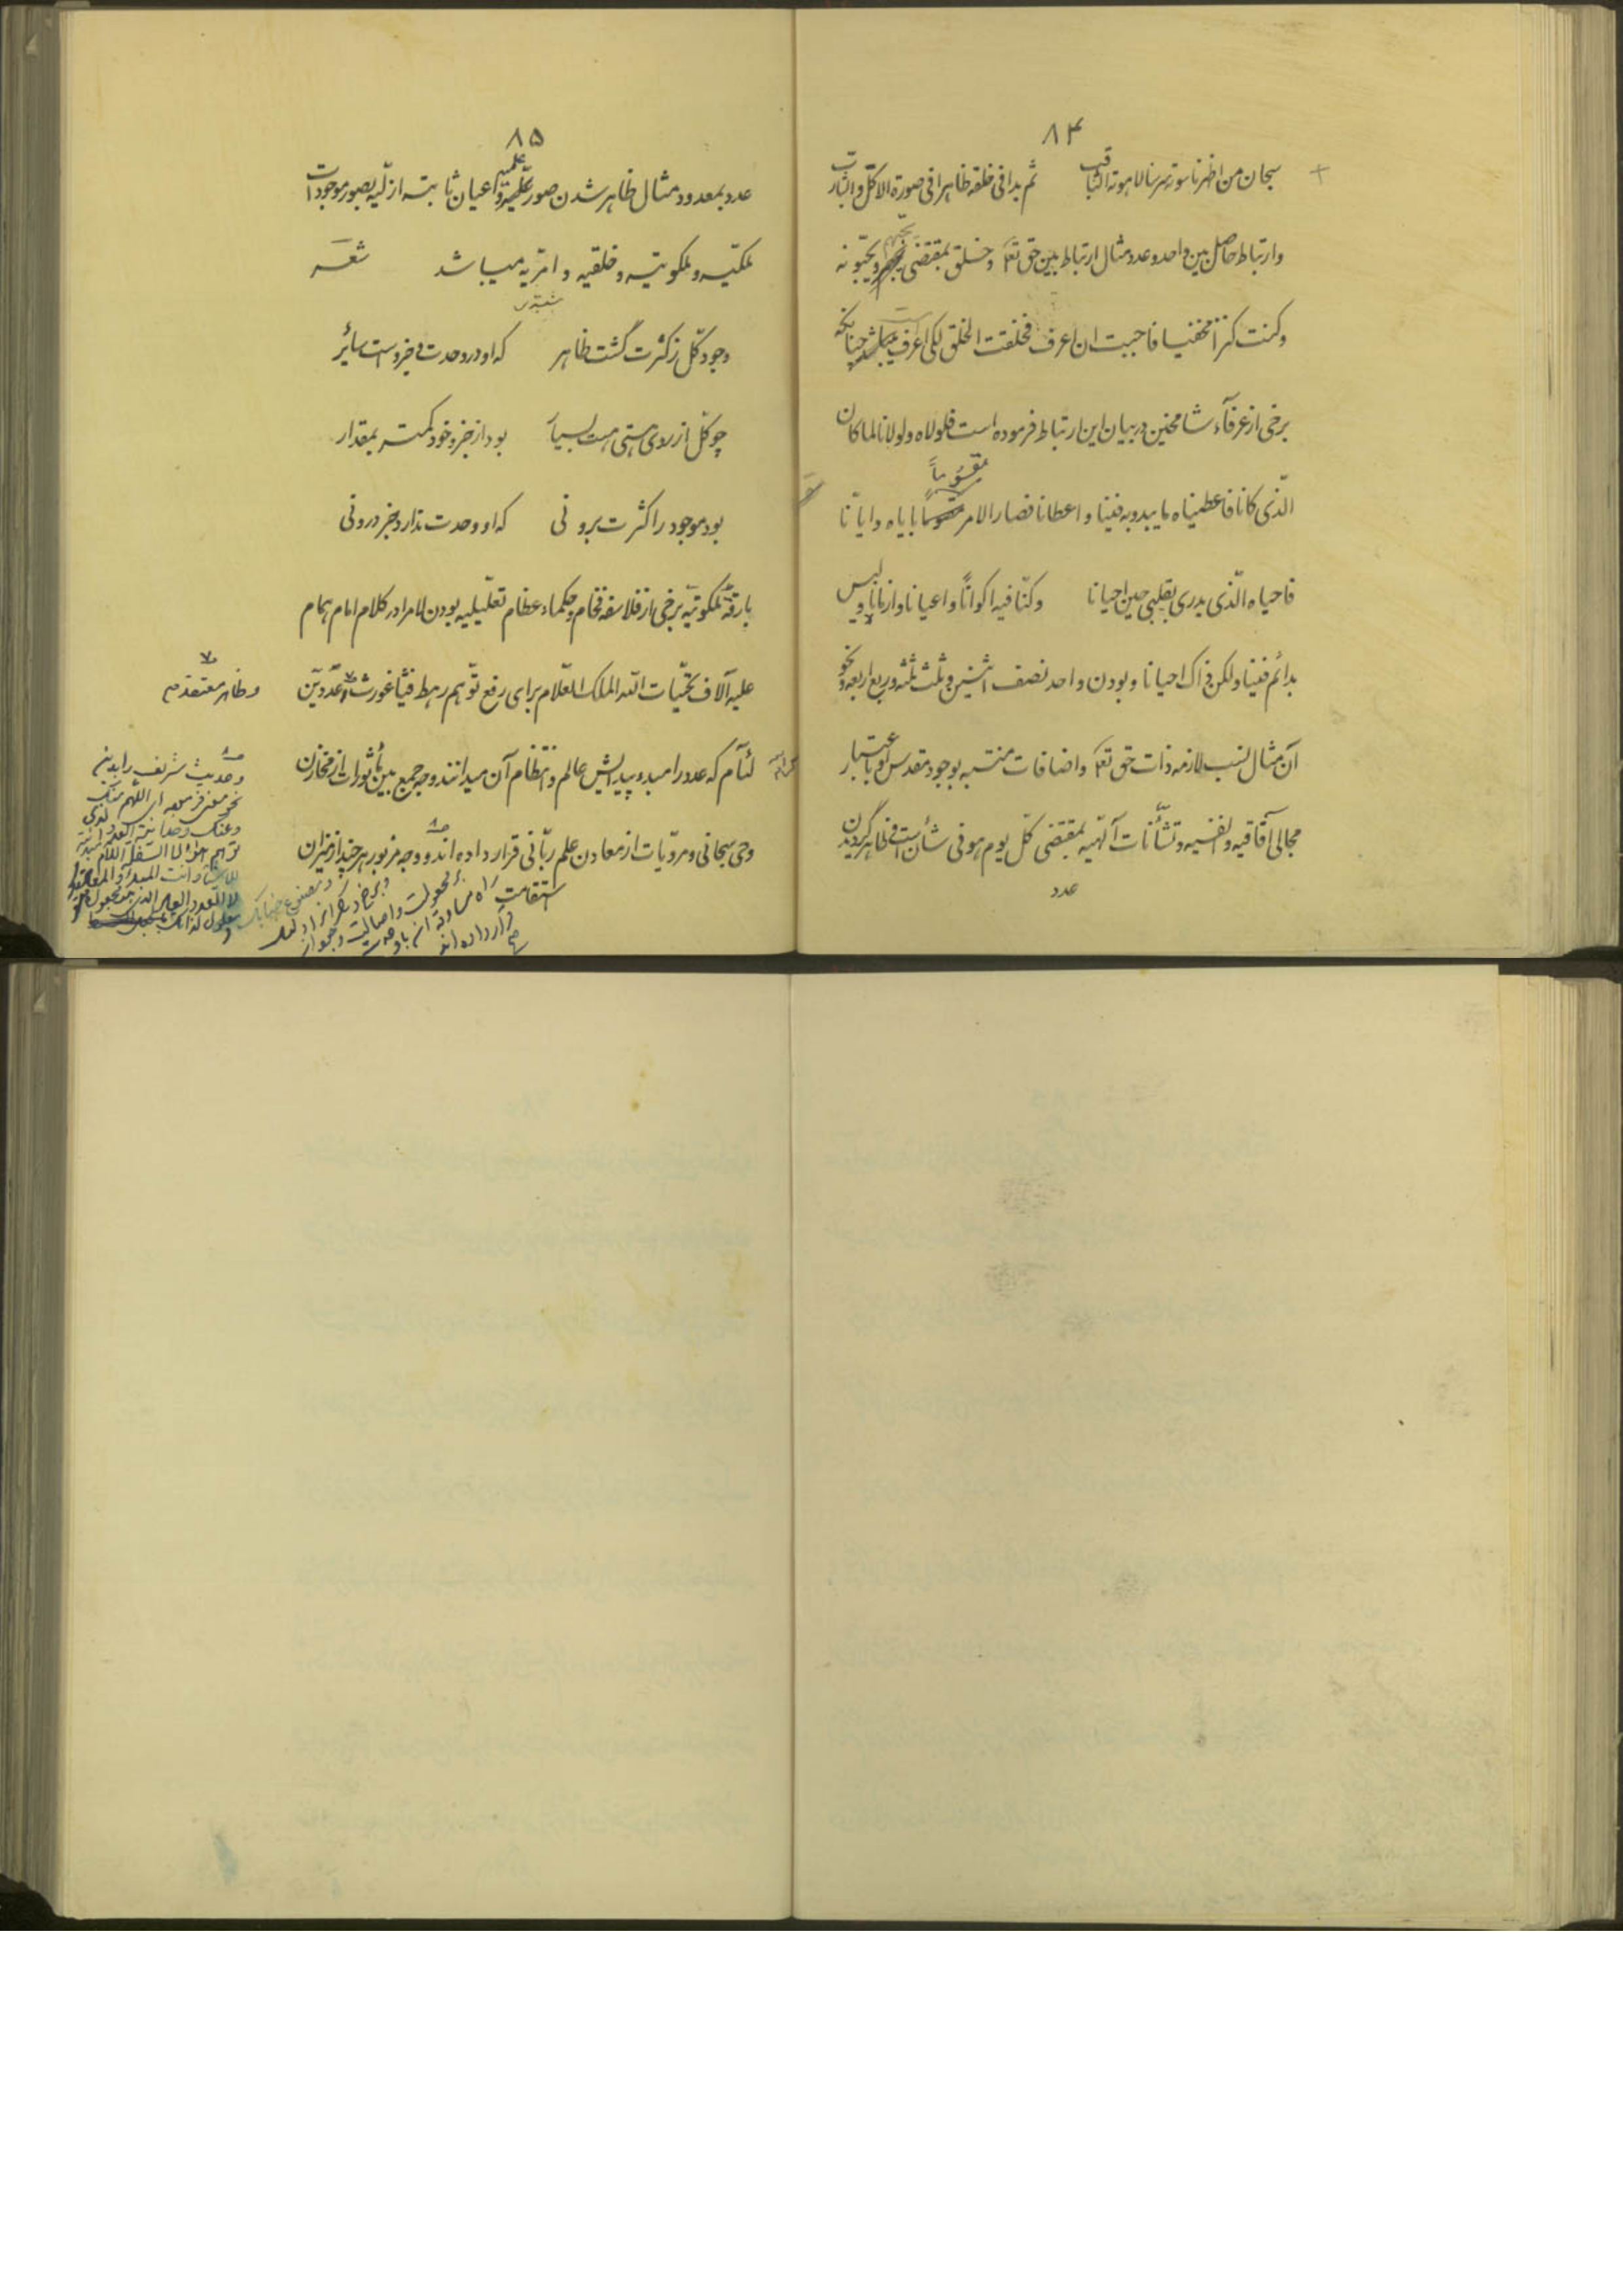 ۸۴
سبحان من اظهر ناسوته سر سنا لاهوته الثاقب ثم بدا فی خلقه ظاهرا فی صورة الاکل والشارب
وارتباط حاصل بین واحد و عدد مثال ارتباط بین حق تعا و خلق بمقتضی یحبهم و یحبونه
وکنت کنزا مخفیا فاحببت ان اعرف فخلقت الخلق لکی اعرف است چنانکه
برخی از عرفآء شامخین در بیان این ارتباط فرموده است فلولاه ولولانا لما کان
الذی کانا فاعطیناه ما یبدو به فینا و اعطانا فصار الامر مقسوماً بایاه و ایانا
فاحیاه الذی یدری بقلبی حین احیانا وکنا فیه اکواناً و اعیانا و ازمانا ولیس
بدائم فینا ولکن ذاک احیانا و بودن واحد نصف اثنین و ثلث ثلثه و ربع اربعه و نحو
آن مثال نسب لازمه ذات حق تعا و اضافات منتسبه بوجود مقدس او باعتبار
مجالی آفاقیه و انفسیه و تشأنات آلهیه بمقتضی کل یوم هو فی شأن است و ظاهر گردیدن
عدد
۸۵
عدد بمعدود مثال ظاهر شدن صور علمیه و اعیان ثابته ازلیه بصور موجودات
ملکیه و ملکوتیه و خلقیه و امریه میباشد شعر
شبستری
وجود کل ز کثرت گشت ظاهر که او در وحدت جزو است سائر
چو کل از روی هستی هست بسیار بود از جزو خود کمتر بمقدار
بود موجود را کثرت برونی که او وحدت ندارد جز درونی
بارقة ملکوتیة برخی از فلاسفه فخام و حکماء عظام تعلیلیه بودن لام را در کلام امام همام
علیه آلاف تحیات الله الملک العلام برای رفع توهم رهط فیثاغورث و عددیین
لئآم که عدد را مبدء پیدایش عالم و انتظام آن میدانند و وجه جمع بین مأثورات از مخازن
وحی سبحانی و مرویات از معادن علم ربانی قرار داده اند و وجه مزبور هر چند از میزان
استقامت
وظاهر معتقد
وحدیث شریف را بدین